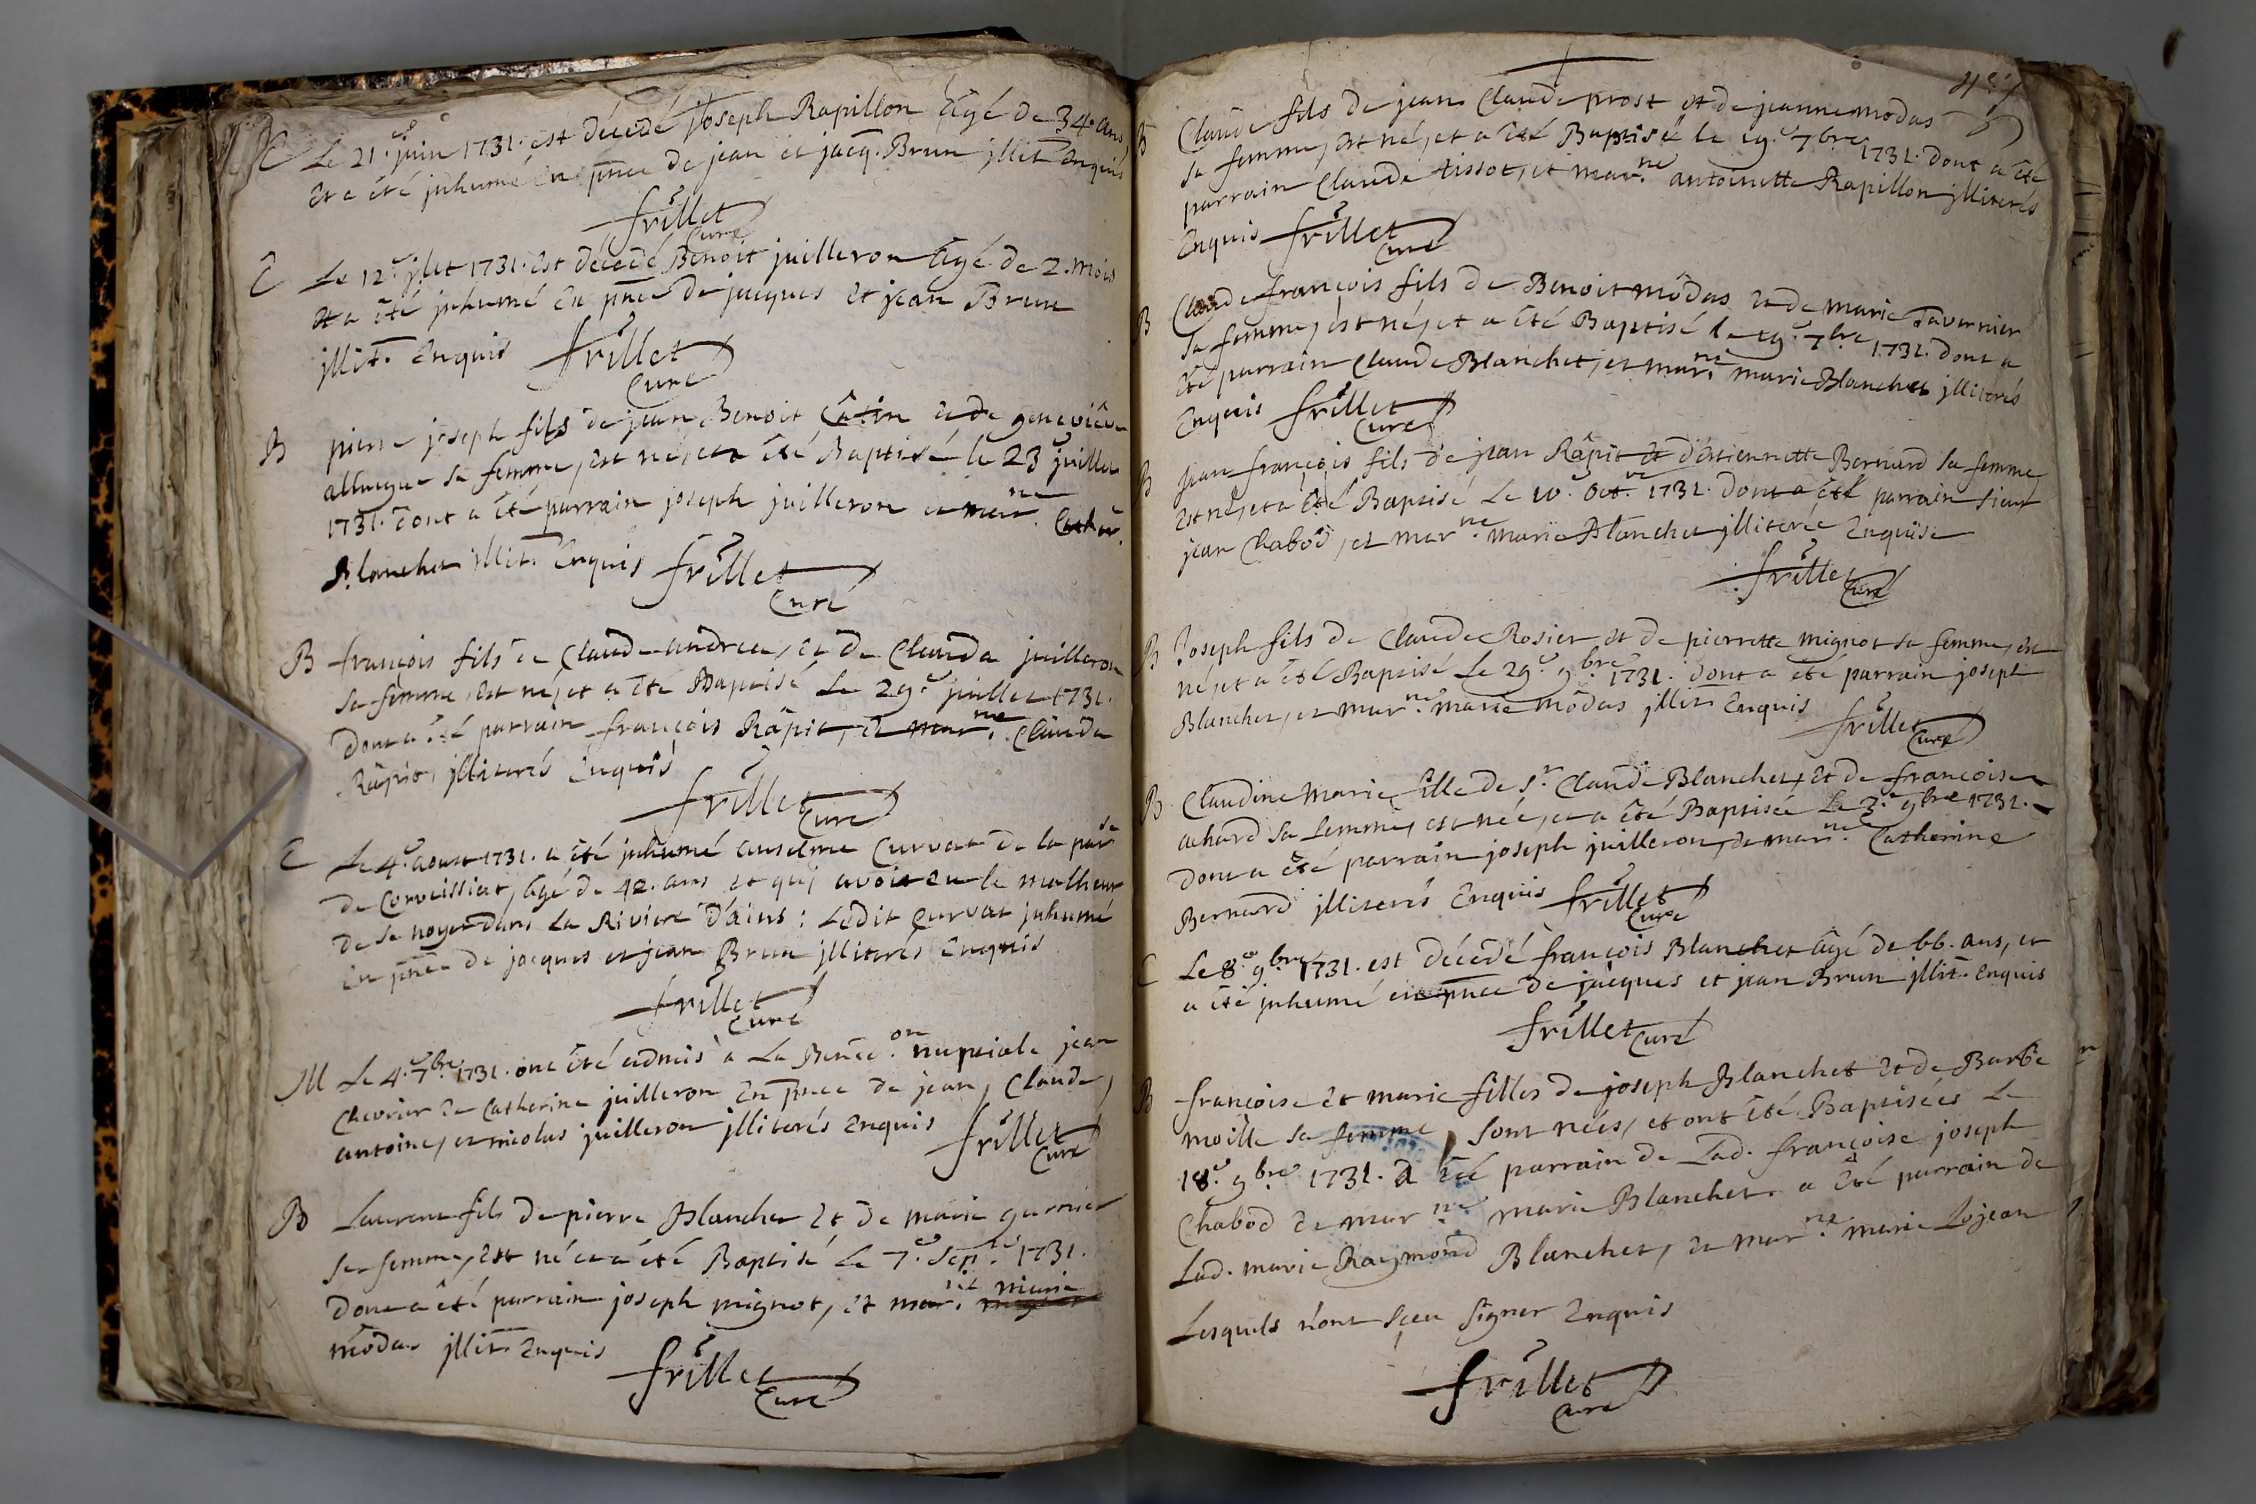 C Le 21.e juin 1731. est décedé joseph Rapillon âgé de 34. ans
et a été jnhumé en pñce de jean et jacq. Brun jllit. Enquis
frillet
Curé
C Le 12.e jlet 1731. est décedé Benoit juilleron âgé de 2. mois
et a été jnhumé en pñce de jacques et jean Brun
jllit. Enquis frillet
Curé
B pierre joseph fils de jean Benoit Câtin et de geneviêve
sa femme, est né, et a êté Baptisé le 23 juillet
1731. dont a êté parrain joseph juilleron et mar.ne Cather.
Blanchet jllit. Enquis frillet
Curé
B françois fils de Claude andrea, et de Clauda juilleron
sa femme, est né, et a êté Baptisé Le 29.e juillet 1731.
dont a êté parrain françois Râpit, et mar.ne Clauda
Râpit, jlliterés Enquis
frillet
Curé
C Le 4.e aoust 1731. a êté jnhumé anselme Curvat de la par.se
de Corveissiat, âgé de 42. ans et qui avoit eu le malheur
de se noyer dans La Riviere d'ains: Ledit Curvat jnhumé
en pñce de jacques et jean Brun jlliterés Enquis
frillet
Curé
M Le 4.e 7.bre 1731. ont êté admis à La Bened.on nuptiale jean
Chevrier et Catherine juilleron en pñce de jean, Claude,
antoine, et nicolas juilleron jlliterés Enquis frillet
Curé
B Laurent fils de pierre Blanchet et de marie garnier
sa femme, est né et a êté Baptisé Le 7.e Sept. 1731.
dont a êté parrain joseph mignot, et mar.ne marie
môdas jllit. Enquis frillet
Curé
B Claude fils de jean Claude prost et de jeanne modas
sa femme, est né, et a êté Baptisé le 19.e 7.bre 1731. dont a êté
parrain Claude tissot, et mar.ne antoinette Rapillon jlliterés
Enquis frillet
Curé
B Claude françois fils de Benoit môdas et de marie Tavernier
sa femme, est né, et a êté Baptisé le 19.e 7.bre 1731. dont a
êté parrain Claude Blanchet, et mar.ne marie Blanchet jlliterés
Enquis frillet
Curé
B jean françois fils de jean Râpit et d'êtiennette Bernard sa femme
est né, et a êté Baptisé Le 10.e Oct. 1731. dont a êté parrain Sieur
jean Chabod, et mar.ne marie Blanchet jlliterée Enquise
frillet
Curé
B Joseph fils de Claude Rosier et de pierrette mignot sa femme, est
né, et a êté Baptisé Le 29.e 9.bre 1731. dont a êté parrain joseph
Blanchet, et mar.ne marie môdas jllit. Enquis
frillet
Curé
B Claudine marie fille de S.r Claude Blanchet, et de françoise
achard sa femme, est née, et a êté Baptisée Le 3.e 9.bre 1731.
dont a êté parrain joseph juilleron, et mar.ne Catherine
Bernard jlliterés Enquis frillet
Curé
C Le 8.e 9.bre 1731. est décedé françois Blanchet âgé de 66. ans, et
a êté jnhumé en pñce de jacques et jean Brun jllit. Enquis
frillet Curé
B françoise et marie filles de joseph Blanchet et de Barbe
moille sa femme, sont nées, et ont êté Baptisées Le
18.e 9.bre 1731. a êté parrain de Lad. françoise joseph
Chabod et mar.ne marie Blanchet. a êté parrain de
Lad. marie Raymond Blanchet, et mar.ne marie Lojean
Lesquels n'ont sçeu signer Enquis
frillet
Curé